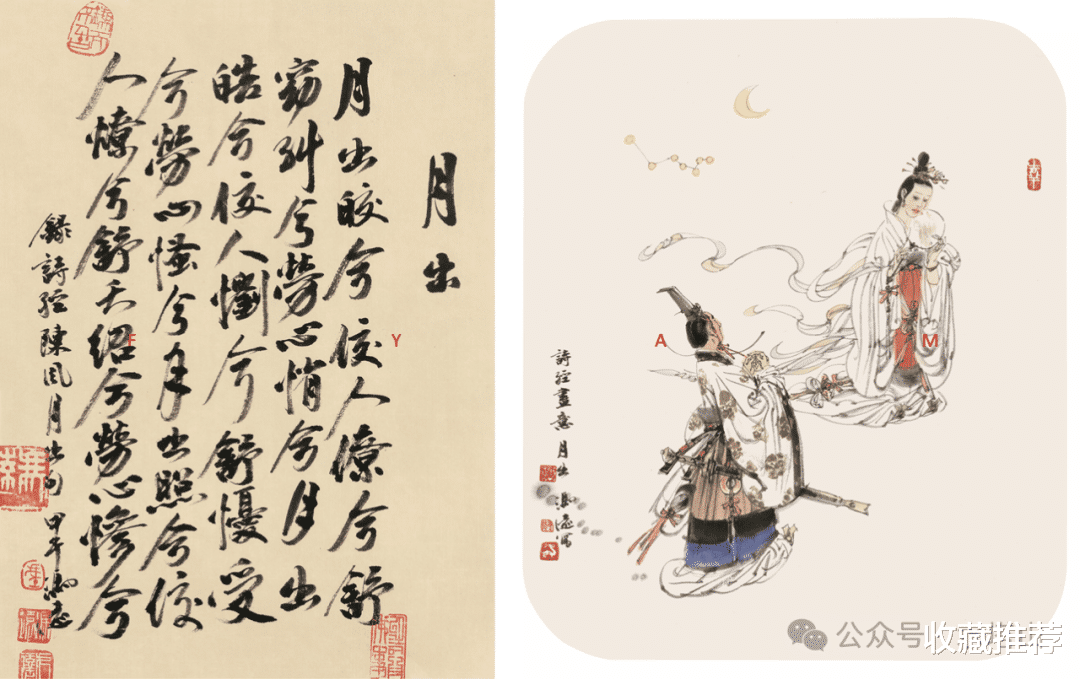 月出
月出皎兮佼人僚兮舒
窈糾兮勞心悄兮月出
皓兮佼人懰兮舒懮受
兮勞心慅兮月出照兮佼
人燎兮舒夭紹兮勞心慘兮
錄詩經陳風月出句 甲午
F
Y
A
M
詩經畫意 月出
公众号
收藏推荐